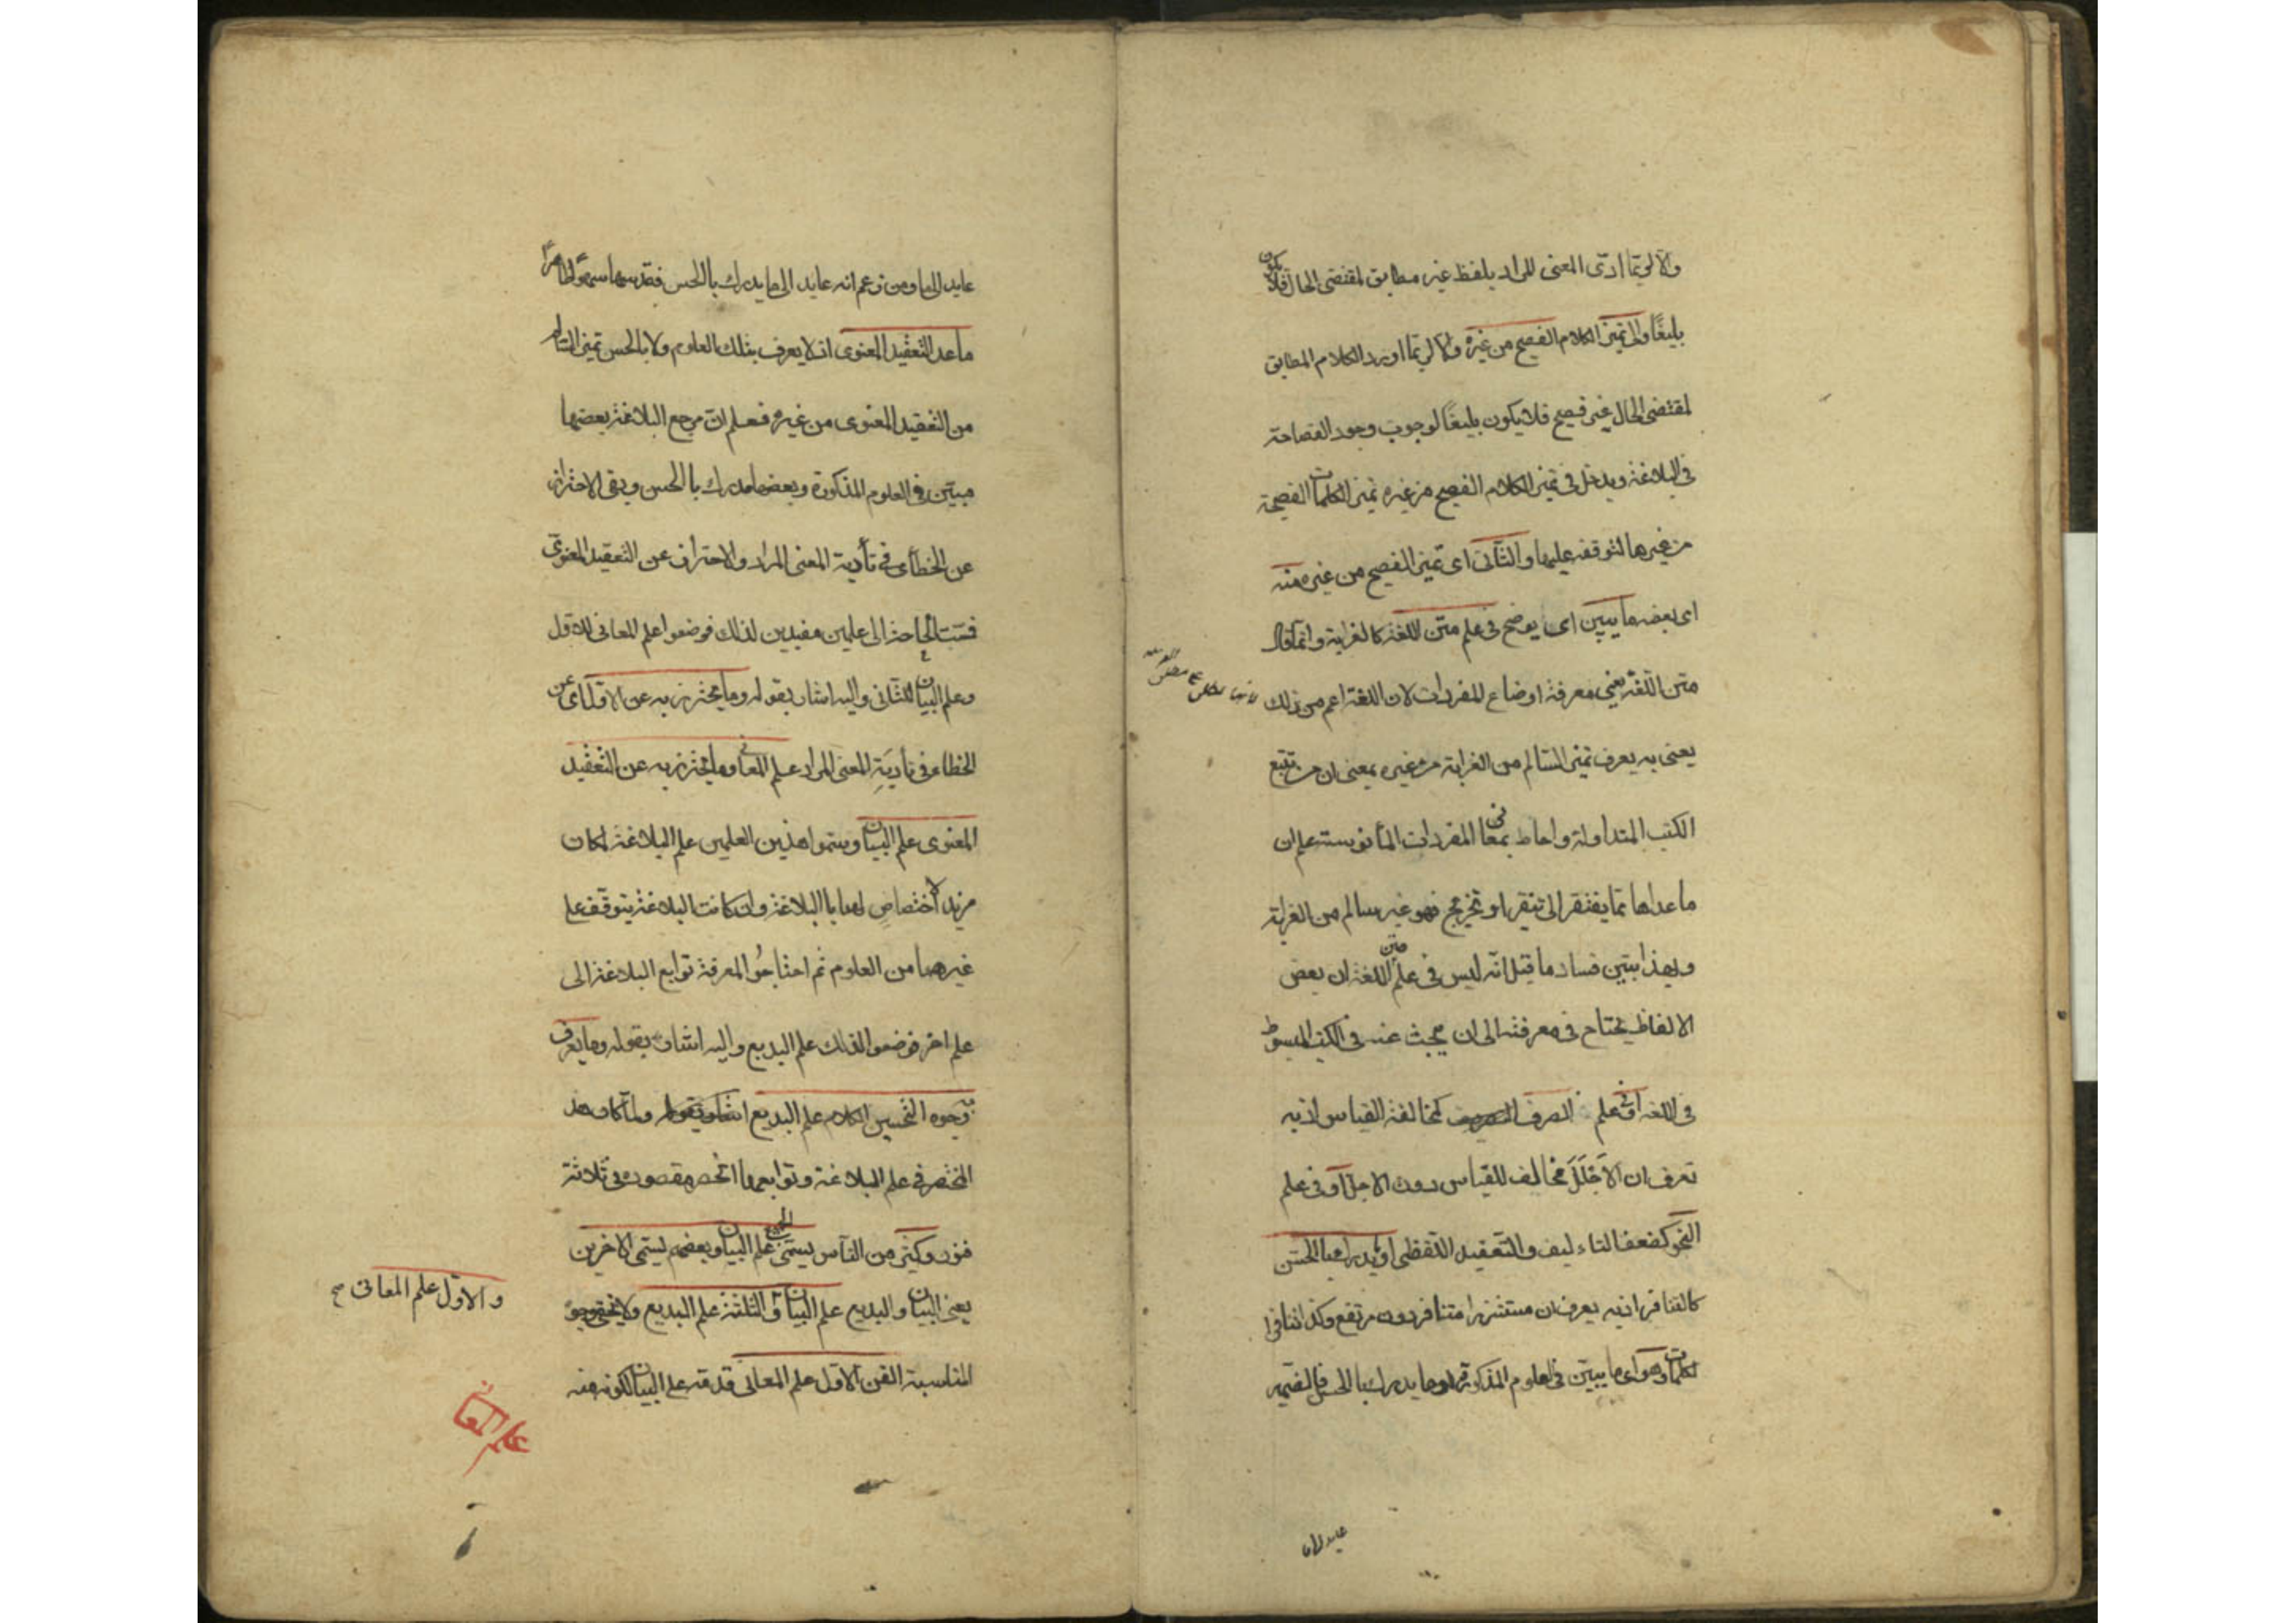 والا لربما ادى المعنى المراد بلفظ غير مطابق لمقتضى الحال فلا يكون
بليغا والى تميز الكلام الفصيح من غيره والا لربما اورد الكلام المطابق
لمقتضى الحال غير فصيح فلا يكون بليغا لوجوب وجود الفصاحة
فى البلاغة ويدخل فى تميز الكلام الفصيح من غيره تميز الكلمات الفصيحة
من غيرها لتوقفه عليها والثانى اى تميز الفصيح من غيره منه
اى بعضه ما يبين اى يوضح فى علم متن اللغة كالغرابة وانما قال
متن اللغة يعنى معرفة اوضاع المفردات لان اللغة اعم من ذلك
يعنى به يعرف تميز السالم من الغرابة من غيره بمعنى ان من تتبع
الكتب المتداولة واحاط بمعانى المفردات المأنوسة علم ان
ما عداها مما يفتقر الى تنقير او تخريج فهو غير سالم من الغرابة
وبهذا يتبين فساد ما قيل انه ليس فى علم متن اللغة ان بعض
الالفاظ يحتاج فى معرفته الى ان يبحث عنه فى الكتب المبسوطة
فى اللغة او فى علم الصرف كمخالفة القياس اذ به
تعرف ان الاجلَلَ مخالف للقياس دون الاجل او فى علم
النحو كضعف التاءليف والتعقيد اللفظى او يدرك بالحس
كالتنافر اذ به يعرف ان مستشزرا متنافر دون مرتفع وكذا تنافر
الكلمات وهو اى ما يبين فى العلوم المذكورة او ما يدرك بالحس فالضمير
عايد الى ما
عايد الى ما ومن زعم انه عايد الى ما يدرك باالحس فقد سها سهوا ظاهرا
ما عدا التعقيد المعنوى اذ لا يعرف بتلك العلوم ولا بالحس تميز السالم
من التعقيد المعنوى من غيره فعلم ان مرجع البلاغة بعضها
مبين فى العلوم المذكورة وبعضها مدرك باالحس وبقى الاحتراز
عن الخطأى فى تأدية المعنى المراد والاحتراز عن التعقيد المعنوى
فمست الحاجة الى علمين مفيدين لذلك فوضعوا علم المعانى للاول
وعلم البيان للثانى واليه اشار بقوله وما يحترز به عن الاول اى عن
الخطاء فى تأدية المعنى المراد علم المعانى وما يحترز به عن التعقيد
المعنوى علم البيان وسموا هذين العلمين علم البلاغة لمكان
مزيد اختصاص لهما باالبلاغة وان كانت البلاغة يتوقف على
غيرهما من العلوم ثم احتاجوُ المعرفة توابع البلاغة الى
علم اخر فوضعوا لذلك علم البديع واليه اشار بقوله وما يعرف
به وجوه التحسين الكلام علم البديع ولما كان هذا
المختصر فى علم البلاغة وتوابعها انحصر مقصوده فى ثلاثة
فنون وكثير من الناس يسمى الجميع علم البيان وبعضهم يسمى الاخرين
يعنى البيان والبديع علم البيان والثلثة علم البديع ولا يخفى وجوه
المناسبة الفن الاول علم المعانى قدمه على البيان لكونه منه
والاول علم المعانى صح
علم المعانى